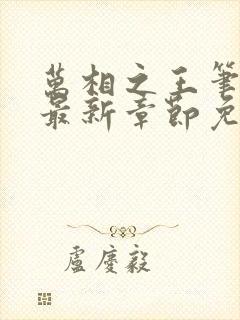 萬相之王筆
最新章節免
盧慶毅